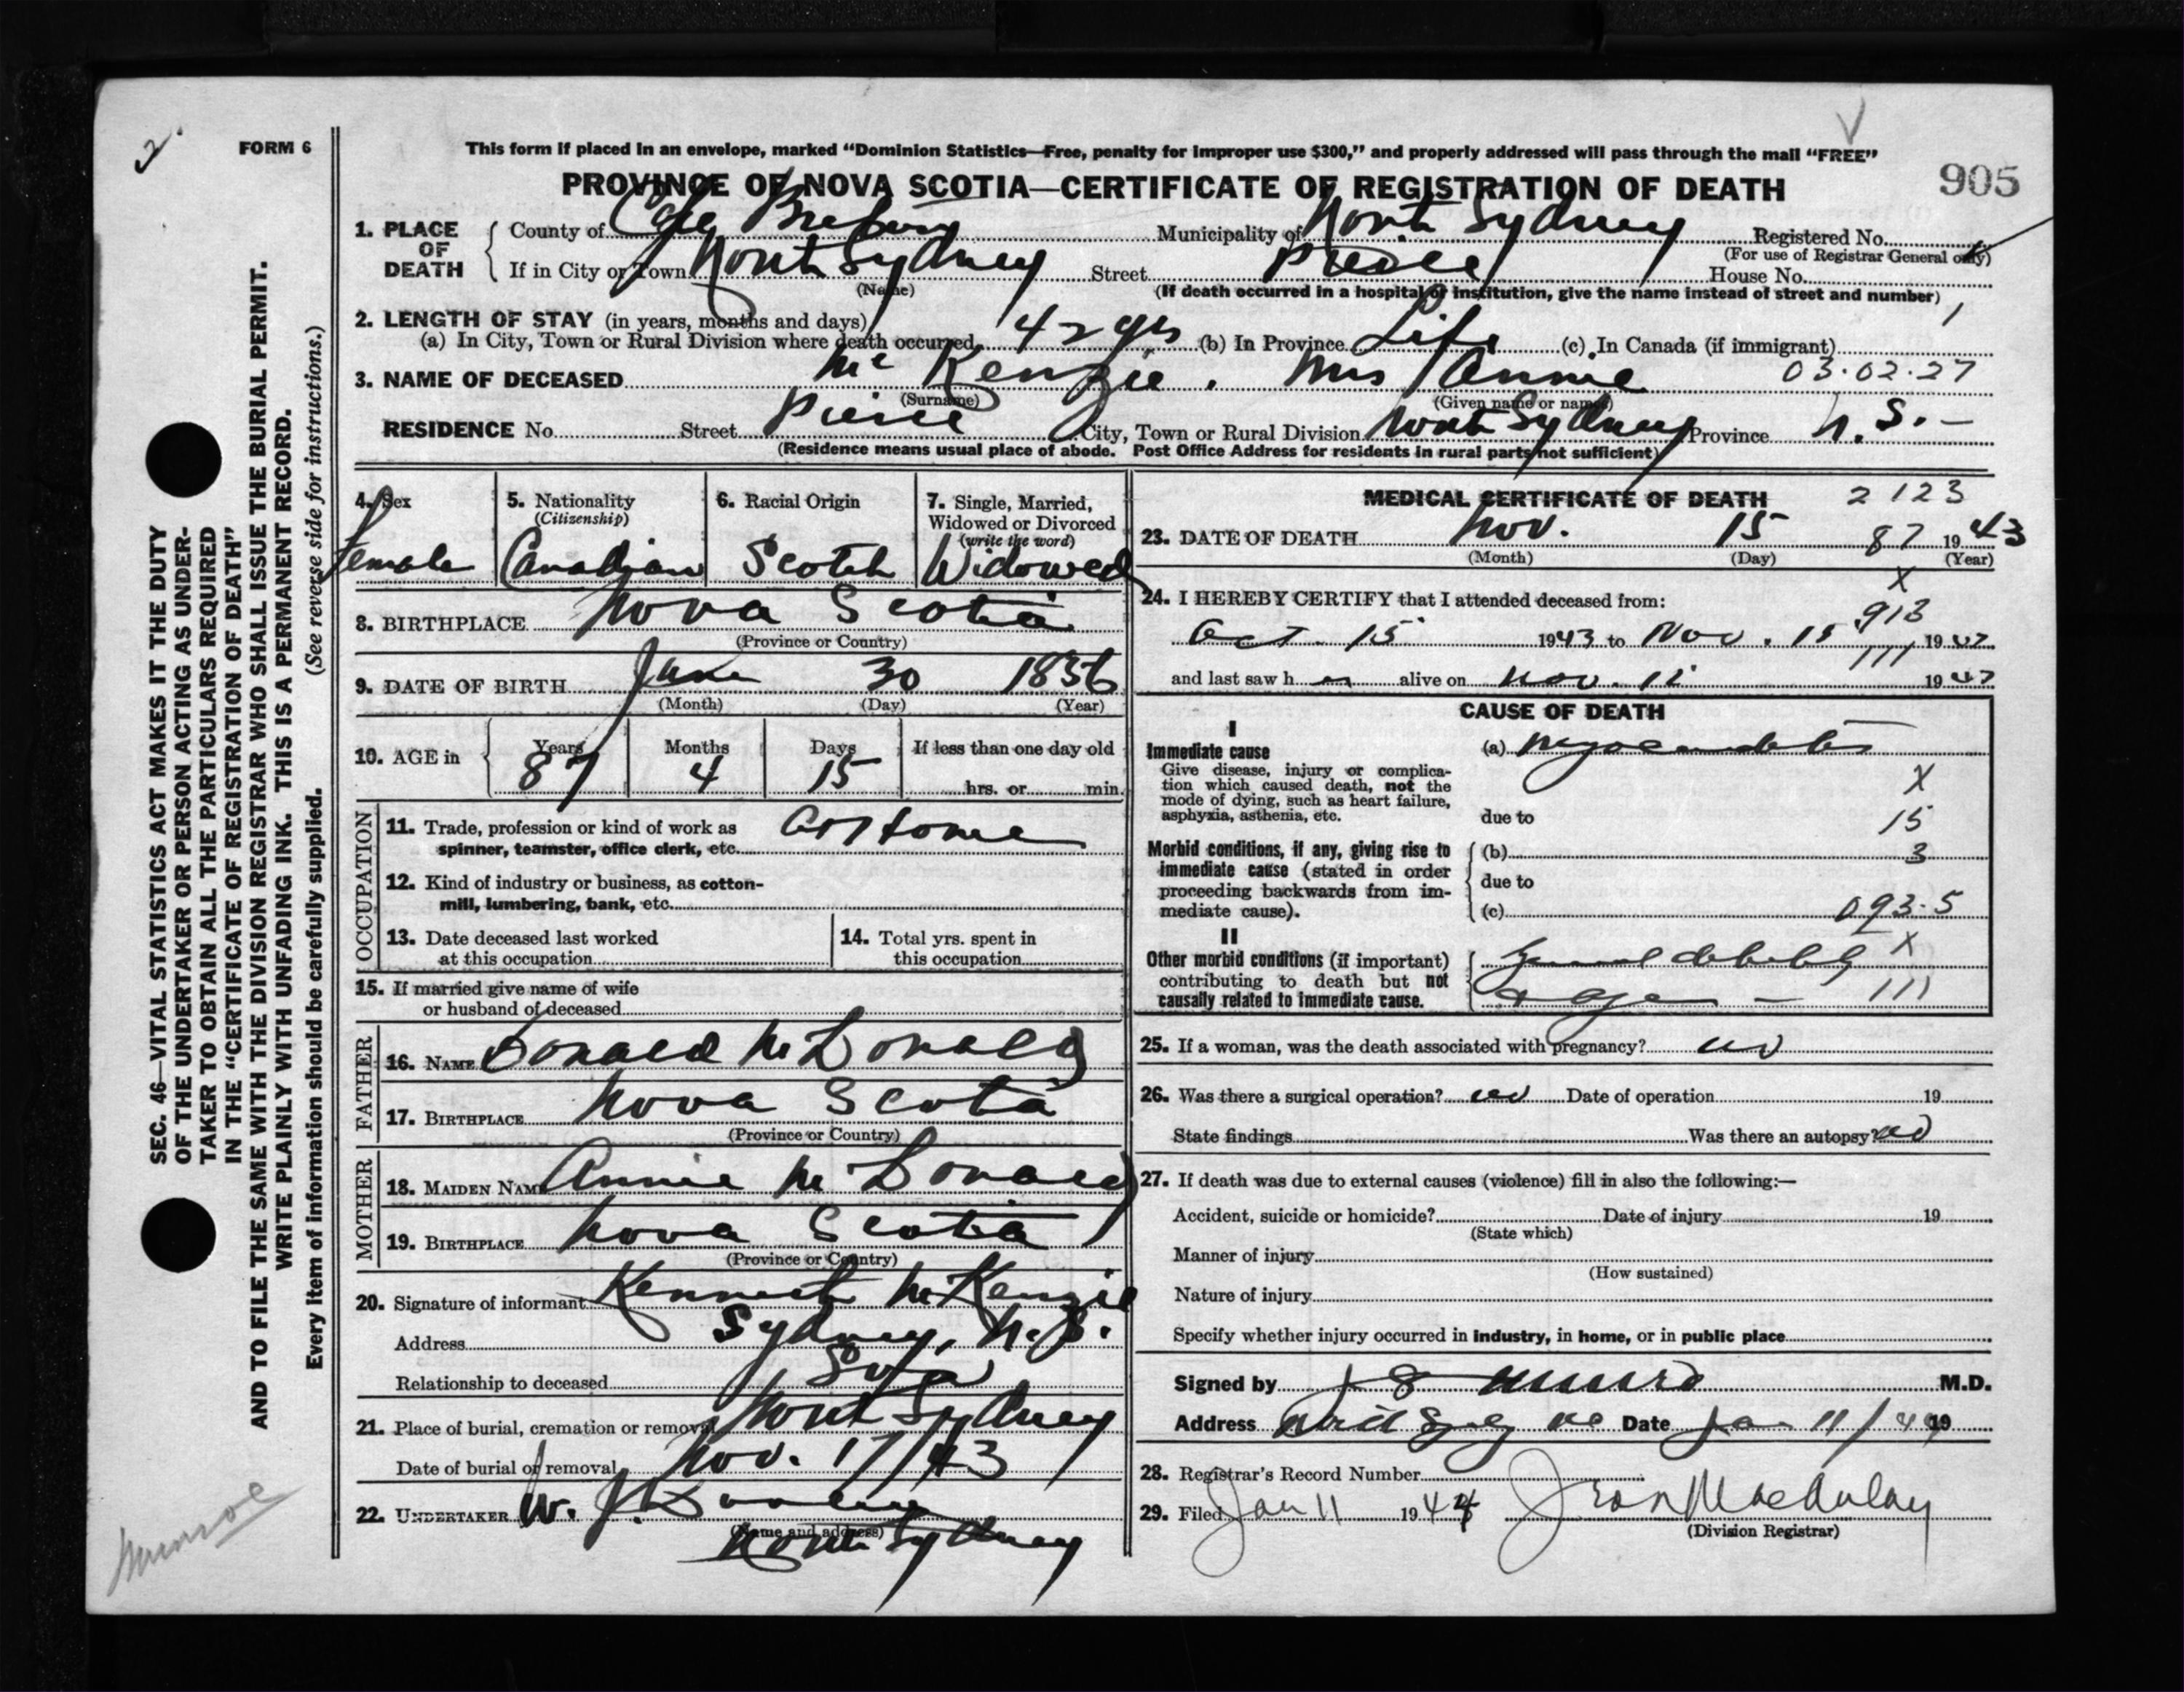 2.
FORM 6
This form if placed in an envelope, marked “Dominion Statistics—Free, penalty for improper use $300,” and properly addressed will pass through the mail “FREE”
PROVINCE OF NOVA SCOTIA—CERTIFICATE OF REGISTRATION OF DEATH
905
1. PLACE OF DEATH
County of Cape Breton Municipality of North Sydney Registered No.
(For use of Registrar General only)
If in City or Town North Sydney Street Pierce House No.
(Name) (If death occurred in a hospital or institution, give the name instead of street and number)
2. LENGTH OF STAY (in years, months and days)
(a) In City, Town or Rural Division where death occurred 42 yrs (b) In Province Life (c) In Canada (if immigrant)
3. NAME OF DECEASED Mc Kenzie. Mrs Annie 03.02.27
(Surname) (Given name or names)
RESIDENCE No. Street Pierce City, Town or Rural Division North Sydney Province N.S.-
(Residence means usual place of abode. Post Office Address for residents in rural parts not sufficient)
4. Sex
female
5. Nationality
(Citizenship)
Canadian
6. Racial Origin
Scotch
7. Single, Married,
Widowed or Divorced
(write the word)
Widowed
8. BIRTHPLACE Nova Scotia
(Province or Country)
9. DATE OF BIRTH June 30 1856
(Month) (Day) (Year)
10. AGE in
Years Months Days If less than one day old
87 4 15 hrs. or min.
OCCUPATION
11. Trade, profession or kind of work as
spinner, teamster, office clerk, etc. At Home
12. Kind of industry or business, as cotton-
mill, lumbering, bank, etc.
13. Date deceased last worked
at this occupation
14. Total yrs. spent in
this occupation
15. If married give name of wife
or husband of deceased
FATHER
16. NAME Donald McDonald
17. BIRTHPLACE Nova Scotia
(Province or Country)
MOTHER
18. MAIDEN NAME Annie McDonald
19. BIRTHPLACE Nova Scotia
(Province or Country)
20. Signature of informant Kenneth McKenzie
Address Sydney, N.S.
Relationship to deceased Son
21. Place of burial, cremation or removal North Sydney
Date of burial or removal Nov. 17/43
22. UNDERTAKER W. J.
(Name and address)
North Sydney
MEDICAL CERTIFICATE OF DEATH 2 123
23. DATE OF DEATH Nov. 15 87 1943
(Month) (Day) (Year)
X
24. I HEREBY CERTIFY that I attended deceased from:
913
Oct. 15 1943 to Nov. 15 1943
111
and last saw her alive on Nov. 1943
CAUSE OF DEATH
I
Immediate cause
Give disease, injury or complica-
tion which caused death, not the
mode of dying, such as heart failure,
asphyxia, asthenia, etc.
(a) Myocarditis
X
due to 15
Morbid conditions, if any, giving rise to
immediate cause (stated in order
proceeding backwards from im-
mediate cause).
(b) 3
due to
(c) 093.5
II
Other morbid conditions (if important)
contributing to death but not
causally related to immediate cause.
General debility X
+ age - 111
25. If a woman, was the death associated with pregnancy? no
26. Was there a surgical operation? no Date of operation 19
State findings Was there an autopsy? no
27. If death was due to external causes (violence) fill in also the following:—
Accident, suicide or homicide? Date of injury 19
(State which)
Manner of injury
(How sustained)
Nature of injury
Specify whether injury occurred in industry, in home, or in public place
Signed by Munro M.D.
Address North Sydney NS Date Jan 11/44 19
28. Registrar's Record Number
29. Filed Jan 11 1944 Jean MacAulay
(Division Registrar)
SEC. 46—VITAL STATISTICS ACT MAKES IT THE DUTY
OF THE UNDERTAKER OR PERSON ACTING AS UNDER-
TAKER TO OBTAIN ALL THE PARTICULARS REQUIRED
IN THE “CERTIFICATE OF REGISTRATION OF DEATH”
AND TO FILE THE SAME WITH THE DIVISION REGISTRAR WHO SHALL ISSUE THE BURIAL PERMIT.
WRITE PLAINLY WITH UNFADING INK. THIS IS A PERMANENT RECORD.
Every item of information should be carefully supplied. (See reverse side for instructions.)
Munroe